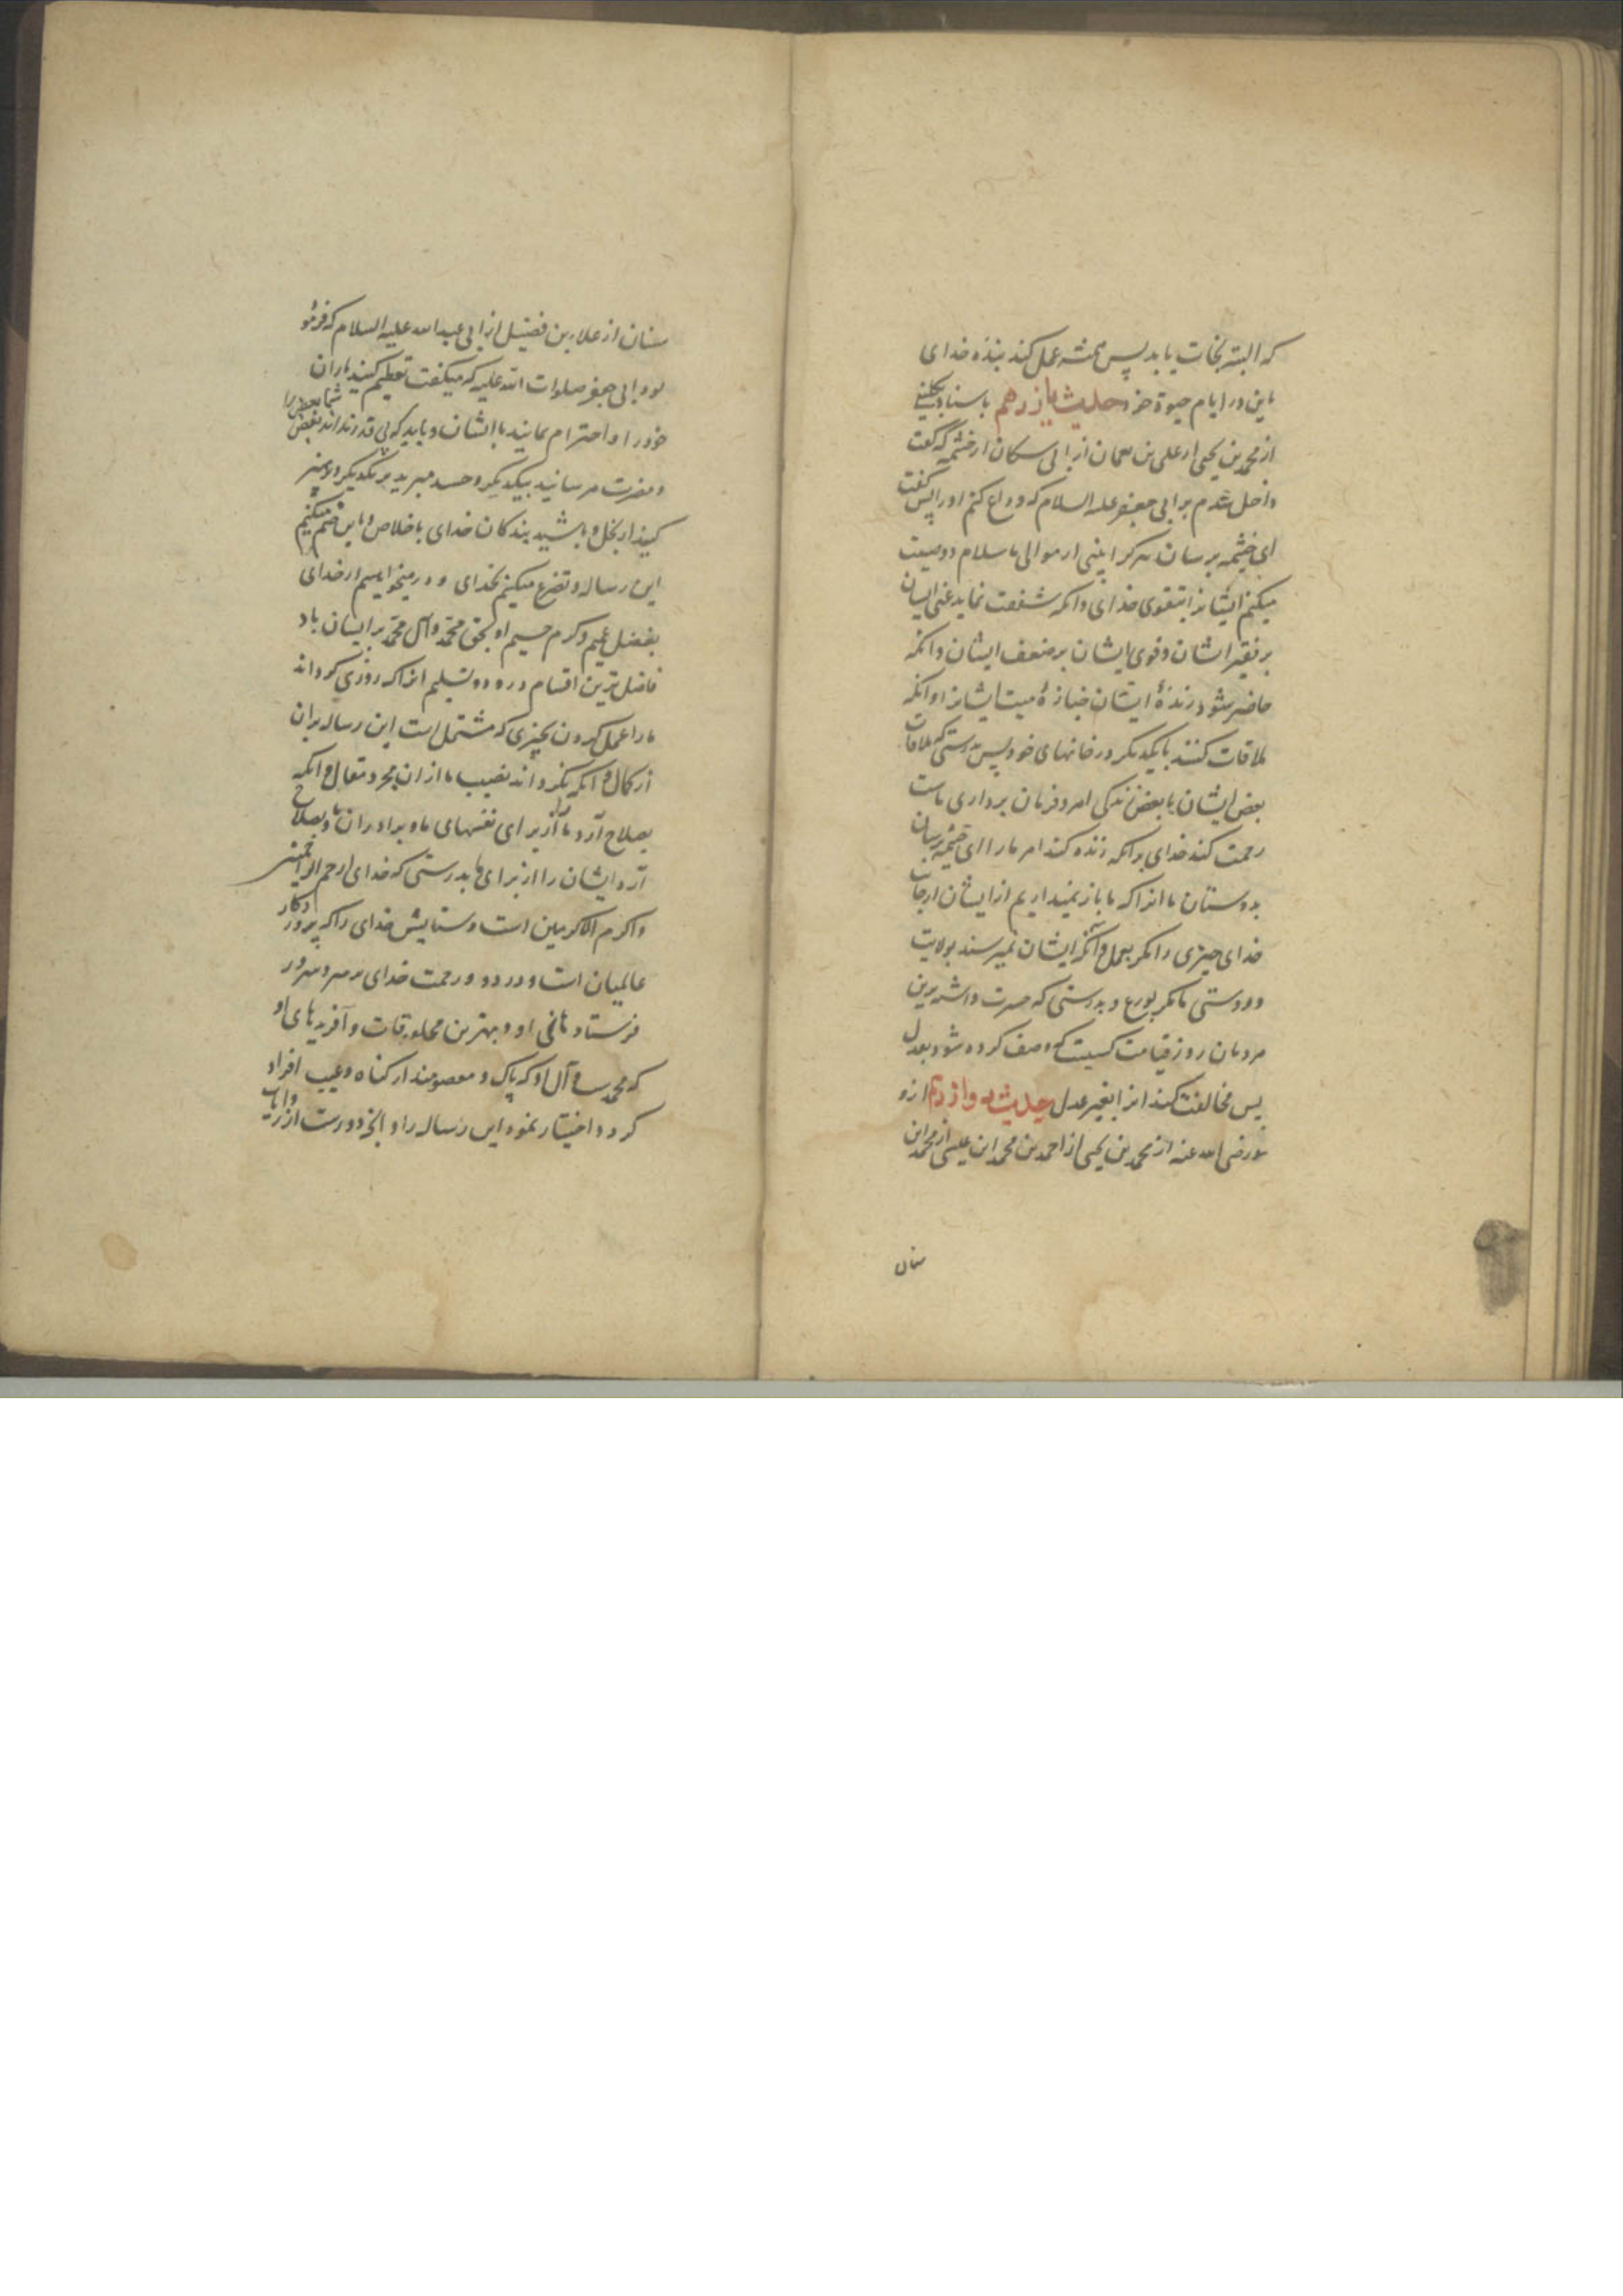 که البته نجات یابد پس همیشه عمل کند بنده خدای
باین در ایام حیوة خود حدیث یازدهم باسناد کلینی
از محمد بن یحیی از علی بن نعمان از ابی سکان از خثیمه که گفت
داخل شدم بر ابی جعفر علیه السلام که وداع کنم او را پس گفت
ای خثیمه برسان هر کرا بینی از موالی ما سلام و وصیت
میکنم ایشانرا بتقوی خدای و انکه شفقت نماید غنی ایشان
بر فقیر ایشان و قوی ایشان بر ضعف ایشان و انکه
حاضر شود زندۀ ایشان جنازۀ میت ایشانرا و انکه
ملاقات کنند بایکدیکر در خانهای خود پس بدرستی که ملاقات
بعض ایشان با بعض زندکی امر و فرمان برداری ماست
رحمت کند خدای برانکه زنده کند امر ما را ای خثیمه برسان
بدوستان ما انرا که ما باز نمیداریم از ایشان از جانب
خدای چیزی را مکر بعمل و آنکه ایشان نمیرسند بولایت
و دوستی ما مکر بورع و بدرستی که حسرت داشته ترین
مردمان روز قیامت کسیست که وصف کرده شود بعدل
پس مخالفت کند انرا بغیر عدل حدیث دوازدهم ازو
رضی الله عنه از محمد بن یحیی از احمد بن محمد ابن عیسی از محمد ابن
سنان
سنان از علاء بن فضیل از ابی عبدالله علیه السلام که فرمو
بود ابی جعفر صلوات الله علیه که میکفت تعظیم کنید یاران
خود را و احترام نمایند با ایشان و باید که بی قدر نداند بعض شما بعض را
و مضرت مرسانید بیکدیکر و حسد مبرید بر یکدیکر و پرهیز
کنید از بخل و باشید بندکان خدای باخلاص و باین ختم میکنیم
این رساله و تضرع میکنیم بخدای و در میخواهیم از خدای
بفضل عمیم و کرم جسیم او بحق محمد و آل محمد بر ایشان باد
فاضل ترین اقسام درود و تسلیم انرا که روزی کرداند
ما را عمل کردن بچیزی که مشتمل است این رساله بران
از کمال و انکه نکرداند نصیب ما از ان مجرد مقال و انکه
بصلاح آرد ما را از برای نفسهای ما و برادران ما و بصلاح
آرد ایشان را از برای ما بدرستی که خدای ارحم الراحمین
و اکرم الاکرمین است و ستایش خدای را که پروردکار
عالمیان است و درود و رحمت خدای بر مهر و سرور
فرستادهای او و بهترین مخلوقات و آفریدهای او
که محمد است و آل او که پاک و معصومند از کناه و عیب افراد
کرد و اختیار نموه این رساله را و انچه درست از